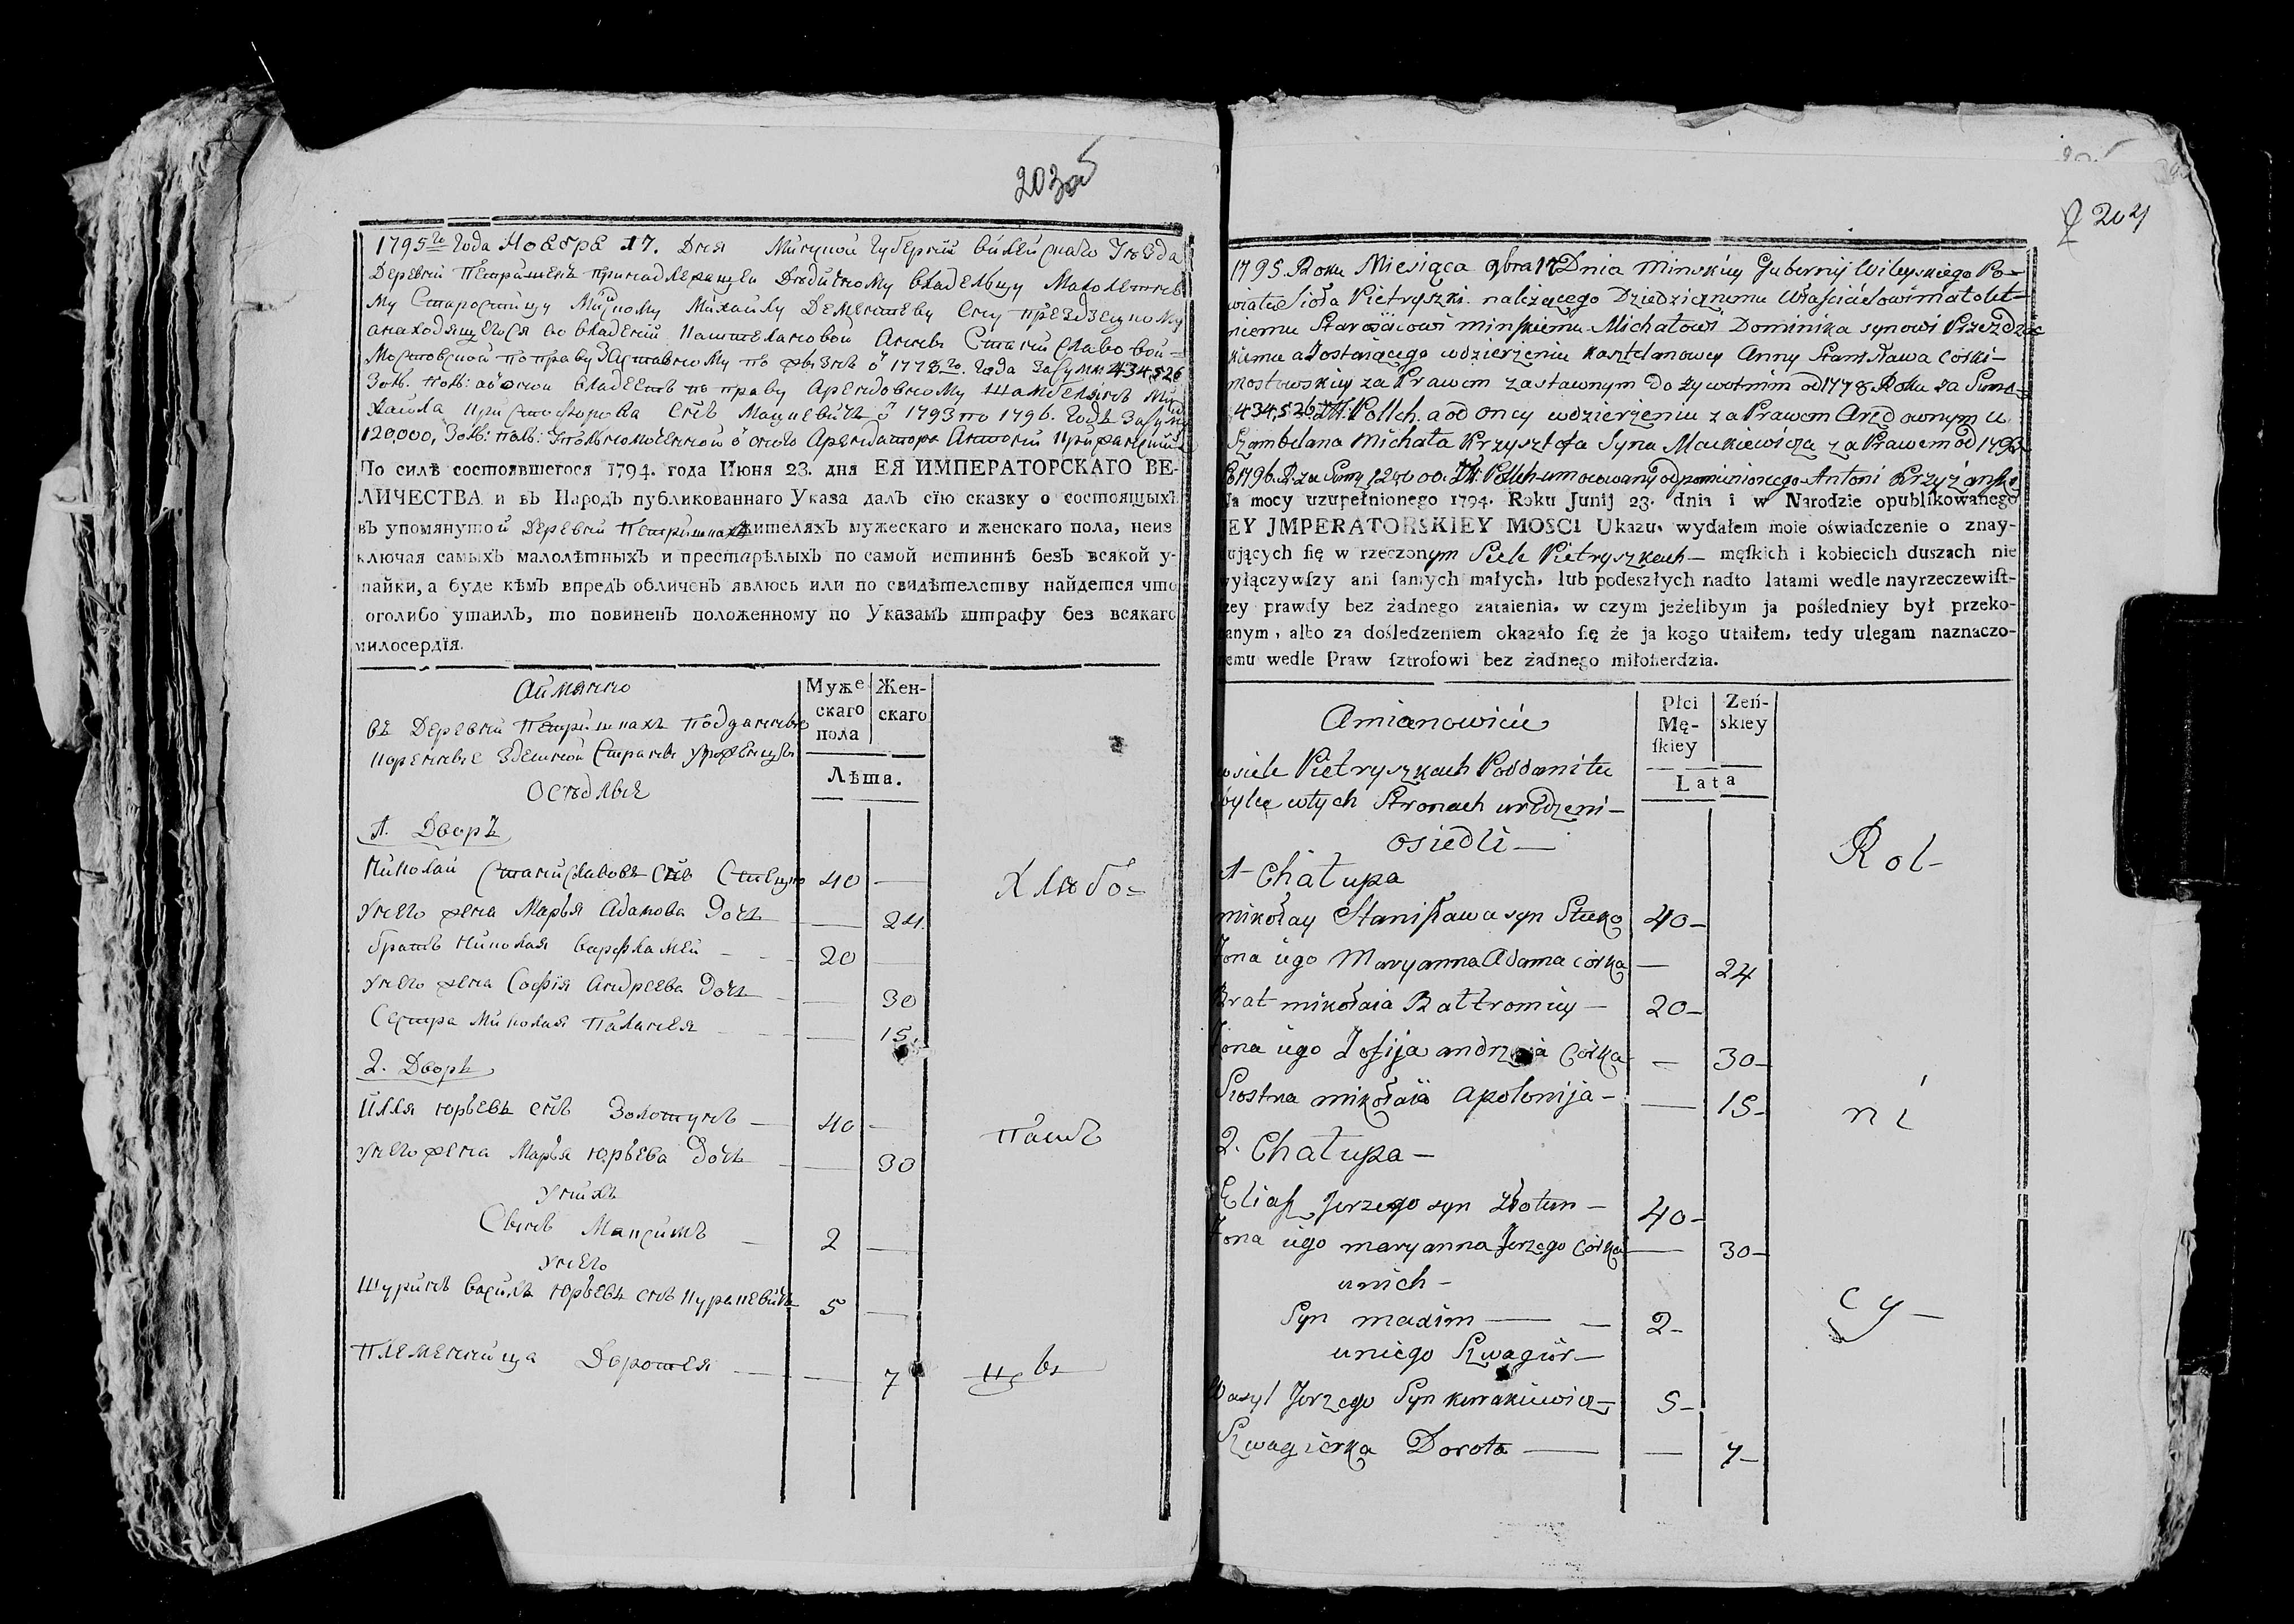 203 об
1795го Года Ноебре 17. Дня Минской Губернии Вилейскаго Уезда
Деревни Петришекъ принадлежащей Дедичному владельцу Малолетне
му Старостицу Минскому Михайлу Деменьтеву Сну Презъзецкому
анаходящегося во владении Каштеляновой Анны Станиславовой
Мостовской по праву Заставному 1778го. Года Засумм 434,526
Зол. Пол: аб оной владеетъ по праву Арендовному Шамбелянъ Ми
хайла Криштофова Снъ Мацкевичъ 1793 по 1796. Годъ Засумм
120,000, Зол: пол: Уполномоченной Арендатора Антоний
По силѣ состоявшегося 1794. года Июня 23. дня ЕЯ ИМПЕРАТОРСКАГО ВЕ-
ЛИЧЕСТВА и въ Народъ публикованнаго Указа далъ сїю сказку о состоящыхъ
въ упомянутой Деревни Петришкахъ жителяхъ мужескаго и женскаго пола, неиз
ключая самыхъ малолѣтныхъ и престарѣлыхъ по самой истиннѣ безъ всякой у-
тайки, а буде кѣмъ впредъ обличенъ явлюсь или по свидѣтелству найдется что
коголибо утаилъ, то повиненъ положенному по Указамъ штрафу без всякаго
милосердїя.
Аймянно
Муже
скаго
пола
Жен-
скаго
въ Деревни Петришкахъ Подданные
коренные Здешной Страны Уроженцы
Лѣта.
Оседлые
1. Дворъ
Николай Станиславовъ Снъ Стецко 40 —
Унего жена Марья Адамова Дочь — 24.
братъ Николая варфламей 20 —
Унего жена София Андреева Дочь — 30
Сестра Миколая Палонея — 15.
2. Дворъ
Илля юрьевъ снъ Золотунъ 40 —
Унего жена Марья юрьева Дочь — 30
Унихъ
Сынъ Максимъ 2 —
Унего
Шуринъ василь юрьевъ снъ Куракевичъ 5 —
Племенница Доротея — 7
Хлебо-
паш
цы
204
1795. Roku Miesiąca 9bra 17 Dnia Minskiey Gubernij Wileyskiego Po-
wiatu Sioła Pietryszki należącego Dziedzicznemu Właścicielowi małolet-
niemu Starościcowi minskiemu Michałowi Dominika synowi Przezdziec
kiemu a Zostaiącego wdzierżeniu kasztelanowey Anny Stanisława corki-
mostowskiey za Prawem zastawnym Do żywotnim od 1778 Roku za Summ-
434,526 Zł. Pollch. a od oney wdzierżeniu za Prawem Aręd ownym u
Szambelana Michała Krzysztofa Syna Mackiewicza za Prawem od 1793
1796. R za Sumę 120,000. Zł: Pollch umocowany odpomienionego Antoni
Na mocy uzupełnionego 1794. Roku Junij 23. dnia i w Narodzie opublikowanego
JEY JMPERATORSKIEY MOSCI Ukazu, wydałem moie oświadczenie o znay-
dujących się w rzeczonym Siele Pietryszkach — męſkich i kobiecich duszach nie
wyłączywſzy ani ſamych małych, lub podeszłych nadto latami wedle nayrzeczewiſt-
ſzey prawdy bez żadnego zataienia, w czym jeżelibym ja poſledniey był przeko-
nanym, albo za dośledzeniem okazało ſię że ja kogo utaiłem, tedy ulegam naznaczo-
nemu wedle Praw ſztrofowi bez żadnego miłoſierdzia.
Amianowicie
Płci
Mę-
ſkiey
Zeń-
skiey
wsiele Pietryszkach Poddani tu
Lata
byłce wtych Stronach urodzeni-
osiedli —
1- Chałupa
mikołay Stanisława syn Stecko 40-
Żona iego Maryanna Adama corka — 24
Brat mikołaia Bałtromiey — 20-
Żona iego Zofija andrzeia Corka — 30-
Siostra mikołaia apolonija - — 15-
2. Chałupa —
Eliaſz Jerzego syn Złotun — 40-
Żona iego maryanna Jerzego Corka — 30-
unich -
Syn maxim — 2-
uniego Szwagier —
Wasyl Jerzego Syn kurakiewicz — 5-
Szwagierka Dorota — — 7-
Rol-
ni
cy —